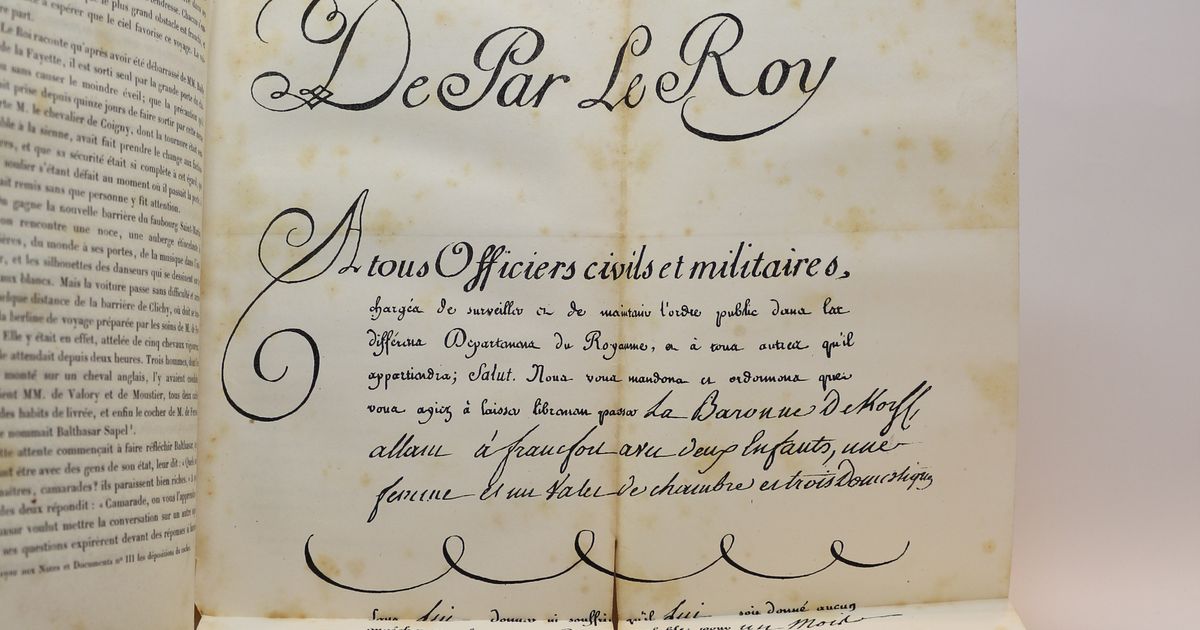 plus grand obstacle est franchi, et
à espérer que le ciel favorise ce voyage. La
part.
Le Roi raconte qu'après avoir été débarrassé de MM.
de la Fayette, il est sorti seul par la grande porte du
sans causer le moindre éveil; que la précaution qu'il
prise depuis quinze jours de faire sortir par cette même
M. le chevalier de Coigny, dont la tournure était
à la sienne, avait fait prendre le change aux
et que sa sécurité était si complète à cet égard,
soulier s'étant défait au moment où il passait la porte,
remis sans que personne y fit attention.
gagne la nouvelle barrière du faubourg Saint-
rencontre une noce, une auberge
du monde à ses portes, de la musique dans
et les silhouettes des danseurs qui se dessinent
aux blancs. Mais la voiture passe sans difficulté et
distance de la barrière de Clichy, où doit se
la berline de voyage préparée par les soins de M. de
Elle y était en effet, attelée de cinq chevaux
attendait depuis deux heures. Trois hommes, dont
monté sur un cheval anglais, l'y avaient
MM. de Valory et de Moustier, tous deux
des habits de livrée, et enfin le cocher de M. de
nommait Balthasar Sapel¹.
attente commençait à faire réfléchir Balthasar,
être avec des gens de son état, leur dit: «
camarades? ils paraissent bien riches. »
des deux répondit: « Camarade, on vous
voulut mettre la conversation sur un autre
ses questions expirèrent devant des réponses
aux Notes et Documents nº III les dépositions du
De Par Le Roy
A tous Officiers civils et militaires,
chargés de surveiller et de maintenir l'ordre public dans les
différens Départemens du Royaume, et à tous autres qu'il
appartiendra; Salut. Nous vous mandons et ordonnons que
vous ayiez à laisser librement passer La Baronne De Korff
allant à francfort avec deux Enfants, une
femme et un Valet de chambre et trois Domestiques
Sans lui donner ni souffrir qu'il lui soit donné aucun
un Mois